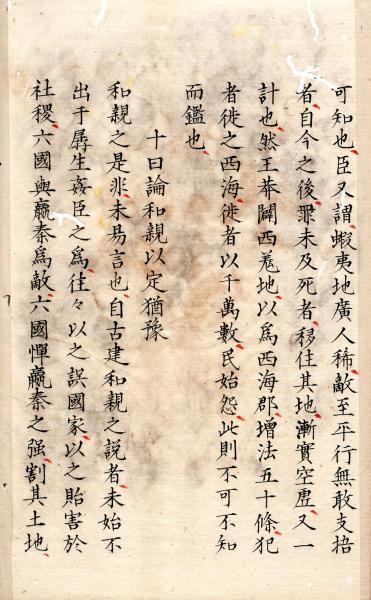 可知也臣又謂蝦夷地廣人稀敵至平行無敢支捂
者自今之後罪未及死者移住其地漸實空虗又一
計也然王莽闢西羗地以爲西海郡增法五十條犯
者徙之西海徙者以千萬數民始怨此則不可不知
而鑑也
十曰論和親以定猶豫
和親之是非未易言也自古建和親之説者未始不
出于孱生姦臣之爲往々以之誤國家以之貽害於
社稷六國與嬴秦爲敵六國憚嬴秦之强割其土地